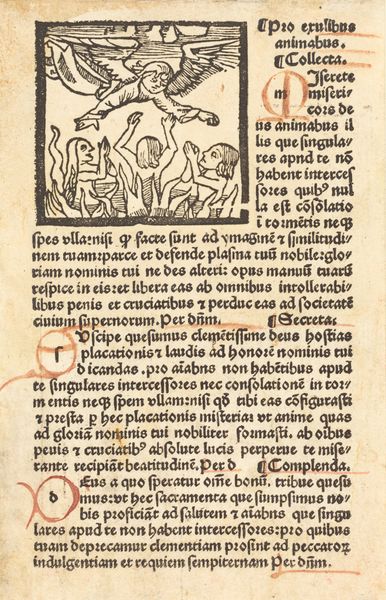 ¶Pro exulibus
animabus.
¶Collecta.
MIserete
m miseri-
cors de
us animabus il
lis que singula
res apud te nō
habent interces
sores quibꝰ nul
la est cōsolatio
i tormētis neqꝫ
spes vlla:nisi ꝙ facte sunt ad ymaginē ⁊ similitudi
nem tuam:parce et defende plasma tuū nobile:glo
riam nominis tui ne des alteri: opus manuū tuarū
respice in eis:et libera eas ab omnibus intollerabi-
libus penis et cruciatibus ⁊ perduc eas ad societatē
ciuium supernorum. Per dn̄m. ¶Secreta.
SUscipe quesumus clemētissime deus hostias
placationis ⁊ laudis ad honorē nominis tui
dicandas. pro aīabus non habētibus apud
te singulares intercessores nec consolationē in tor
mentis neqꝫ spem vllam:nisi qð tibi eas cōfigurasti
⁊ presta ꝑ hec placationis misteria: vt anime quas
ad gloriā nominis tui nobiliter formasti. ab oībus
penis ⁊ cruciatibꝰ absolute lucis perpetue te mise-
rante recipiāt beatitudinē. Per d ¶Complenda.
DEus a quo speratur om̄e bonū. tribue quesu
mus: vt hec sacramenta que sumpsimus no-
bis proficiāt ad salutem ⁊ aīabus que singu
lares apud te non habent intercessores: pro quibus
tuam deprecamur clementiam prosint ad peccatoꝝ
indulgentiam et requiem sempiternam Per dn̄m.